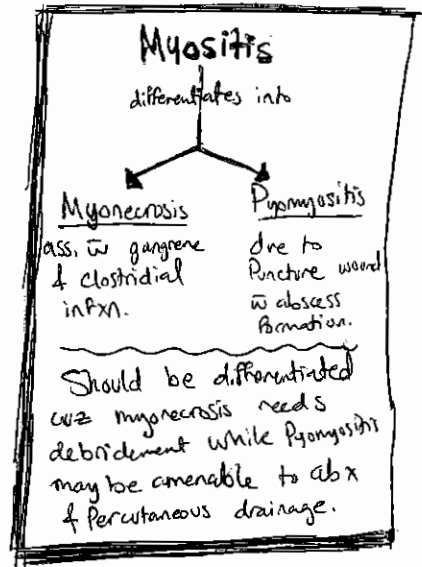 Myositis
differentiates into
Myonecrosis
ass. w̄ gangrene
& clostridial
infxn.
Pyomyositis
due to
Puncture wound
w̄ abscess
formation.
Should be differentiated
cuz myonecrosis needs
debridement while Pyomyositis
may be amenable to abx
& Percutaneous drainage.